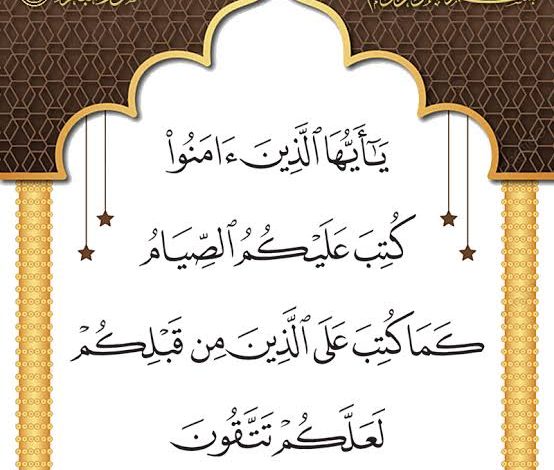 يَـٰٓأَيُّهَا ٱلَّذِينَ ءَامَنُوا۟
كُتِبَ عَلَيْكُمُ ٱلصِّيَامُ
كَمَا كُتِبَ عَلَى ٱلَّذِينَ مِن قَبْلِكُمْ
لَعَلَّكُمْ تَتَّقُونَ